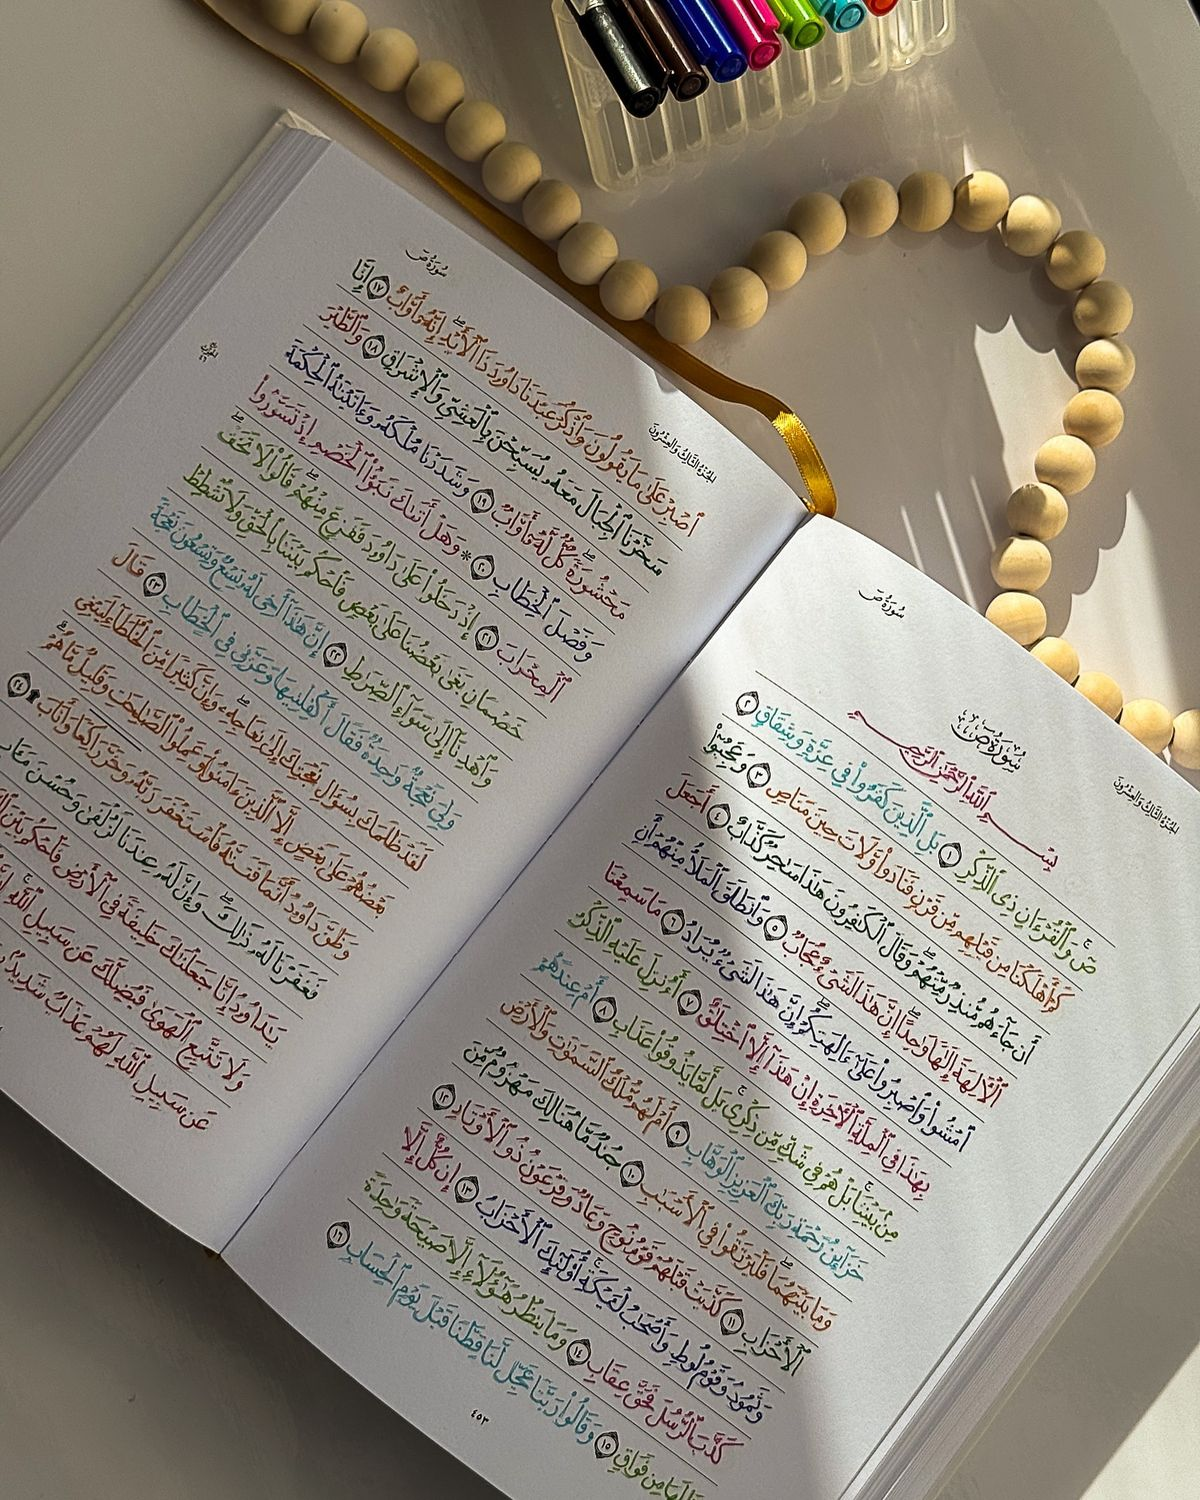 سُورَةُ صٓ
الجُزْءُ الثَّالِثُ وَالعِشْرُونَ
سُورَةُ صٓ
بِسْمِ ٱللَّهِ ٱلرَّحْمَٰنِ ٱلرَّحِيمِ
صٓ وَٱلْقُرْءَانِ ذِى ٱلذِّكْرِ ١ بَلِ ٱلَّذِينَ كَفَرُوا۟ فِى عِزَّةٍ وَشِقَاقٍ ٢
كَمْ أَهْلَكْنَا مِن قَبْلِهِم مِّن قَرْنٍ فَنَادَوا۟ وَّلَاتَ حِينَ مَنَاصٍ ٣ وَعَجِبُوٓا۟
أَن جَآءَهُم مُّنذِرٌ مِّنْهُمْ ۖ وَقَالَ ٱلْكَٰفِرُونَ هَٰذَا سَٰحِرٌ كَذَّابٌ ٤ أَجَعَلَ
ٱلْـَٔالِهَةَ إِلَٰهًا وَٰحِدًا ۖ إِنَّ هَٰذَا لَشَىْءٌ عُجَابٌ ٥ وَٱنطَلَقَ ٱلْمَلَأُ مِنْهُمْ أَنِ
ٱمْشُوا۟ وَٱصْبِرُوا۟ عَلَىٰٓ ءَالِهَتِكُمْ ۖ إِنَّ هَٰذَا لَشَىْءٌ يُرَادُ ٦ مَا سَمِعْنَا
بِهَٰذَا فِى ٱلْمِلَّةِ ٱلْـَٔاخِرَةِ إِنْ هَٰذَآ إِلَّا ٱخْتِلَٰقٌ ٧ أَءُنزِلَ عَلَيْهِ ٱلذِّكْرُ
مِنۢ بَيْنِنَا ۚ بَلْ هُمْ فِى شَكٍّ مِّن ذِكْرِى ۖ بَل لَّمَّا يَذُوقُوا۟ عَذَابِ ٨ أَمْ عِندَهُمْ
خَزَآئِنُ رَحْمَةِ رَبِّكَ ٱلْعَزِيزِ ٱلْوَهَّابِ ٩ أَمْ لَهُم مُّلْكُ ٱلسَّمَٰوَٰتِ وَٱلْأَرْضِ
وَمَا بَيْنَهُمَا ۖ فَلْيَرْتَقُوا۟ فِى ٱلْأَسْبَٰبِ ١٠ جُندٌ مَّا هُنَالِكَ مَهْزُومٌ مِّنَ
ٱلْأَحْزَابِ ١١ كَذَّبَتْ قَبْلَهُمْ قَوْمُ نُوحٍ وَعَادٌ وَفِرْعَوْنُ ذُو ٱلْأَوْتَادِ ١٢
وَثَمُودُ وَقَوْمُ لُوطٍ وَأَصْحَٰبُ لْـَٔيْكَةِ ۚ أُو۟لَٰٓئِكَ ٱلْأَحْزَابُ ١٣ إِن كُلٌّ إِلَّا
كَذَّبَ ٱلرُّسُلَ فَحَقَّ عِقَابِ ١٤ وَمَا يَنظُرُ هَٰٓؤُلَآءِ إِلَّا صَيْحَةً وَٰحِدَةً
مَّا لَهَا مِن فَوَاقٍ ١٥ وَقَالُوا۟ رَبَّنَا عَجِّل لَّنَا قِطَّنَا قَبْلَ يَوْمِ ٱلْحِسَابِ ١٦
٤٥٣
سُورَةُ صٓ
الجُزْءُ الثَّالِثُ وَالعِشْرُونَ
ٱصْبِرْ عَلَىٰ مَا يَقُولُونَ وَٱذْكُرْ عَبْدَنَا دَاوُۥدَ ذَا ٱلْأَيْدِ ۖ إِنَّهُۥٓ أَوَّابٌ ١٧ إِنَّا
سَخَّرْنَا ٱلْجِبَالَ مَعَهُۥ يُسَبِّحْنَ بِٱلْعَشِىِّ وَٱلْإِشْرَاقِ ١٨ وَٱلطَّيْرَ
مَحْشُورَةً ۖ كُلٌّ لَّهُۥٓ أَوَّابٌ ١٩ وَشَدَدْنَا مُلْكَهُۥ وَءَاتَيْنَٰهُ ٱلْحِكْمَةَ
وَفَصْلَ ٱلْخِطَابِ ٢٠ * وَهَلْ أَتَىٰكَ نَبَؤُا۟ ٱلْخَصْمِ إِذْ تَسَوَّرُوا۟
ٱلْمِحْرَابَ ٢١ إِذْ دَخَلُوا۟ عَلَىٰ دَاوُۥدَ فَفَزِعَ مِنْهُمْ ۖ قَالُوا۟ لَا تَخَفْ ۖ
خَصْمَانِ بَغَىٰ بَعْضُنَا عَلَىٰ بَعْضٍ فَٱحْكُم بَيْنَنَا بِٱلْحَقِّ وَلَا تُشْطِطْ
وَٱهْدِنَآ إِلَىٰ سَوَآءِ ٱلصِّرَٰطِ ٢٢ إِنَّ هَٰذَآ أَخِى لَهُۥ تِسْعٌ وَتِسْعُونَ نَعْجَةً
وَلِىَ نَعْجَةٌ وَٰحِدَةٌ فَقَالَ أَكْفِلْنِيهَا وَعَزَّنِى فِى ٱلْخِطَابِ ٢٣ قَالَ
لَقَدْ ظَلَمَكَ بِسُؤَالِ نَعْجَتِكَ إِلَىٰ نِعَاجِهِۦ ۖ وَإِنَّ كَثِيرًا مِّنَ ٱلْخُلَطَآءِ لَيَبْغِى
بَعْضُهُمْ عَلَىٰ بَعْضٍ إِلَّا ٱلَّذِينَ ءَامَنُوا۟ وَعَمِلُوا۟ ٱلصَّٰلِحَٰتِ وَقَلِيلٌ مَّا هُمْ ۗ
وَظَنَّ دَاوُۥدُ أَنَّمَا فَتَنَّٰهُ فَٱسْتَغْفَرَ رَبَّهُۥ وَخَرَّ رَاكِعًا وَأَنَابَ ۩ ٢٤
فَغَفَرْنَا لَهُۥ ذَٰلِكَ ۖ وَإِنَّ لَهُۥ عِندَنَا لَزُلْفَىٰ وَحُسْنَ مَـَٔابٍ
يَٰدَاوُۥدُ إِنَّا جَعَلْنَٰكَ خَلِيفَةً فِى ٱلْأَرْضِ فَٱحْكُم بَيْنَ
وَلَا تَتَّبِعِ ٱلْهَوَىٰ فَيُضِلَّكَ عَن سَبِيلِ ٱللَّهِ ۚ
عَن سَبِيلِ ٱللَّهِ لَهُمْ عَذَابٌ شَدِيدٌۢ